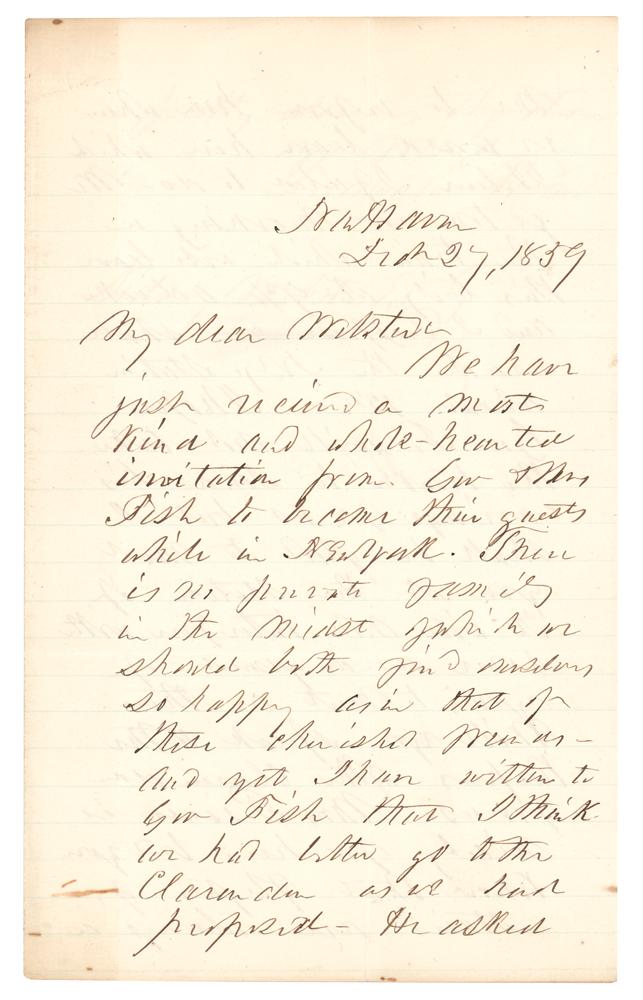 New Haven
27, 1859
My dear Webster
We have
just received a most
kind and whole-hearted
invitation from Gov & Mrs
Fish to become their guests
while in New York. There
is no private family
in the midst of which we
should both find ourselves
so happy as in that of
these cherished friends -
and yet I have written to
Gov Fish that I think
we had better go to the
Clarendon as we had
proposed - He asked